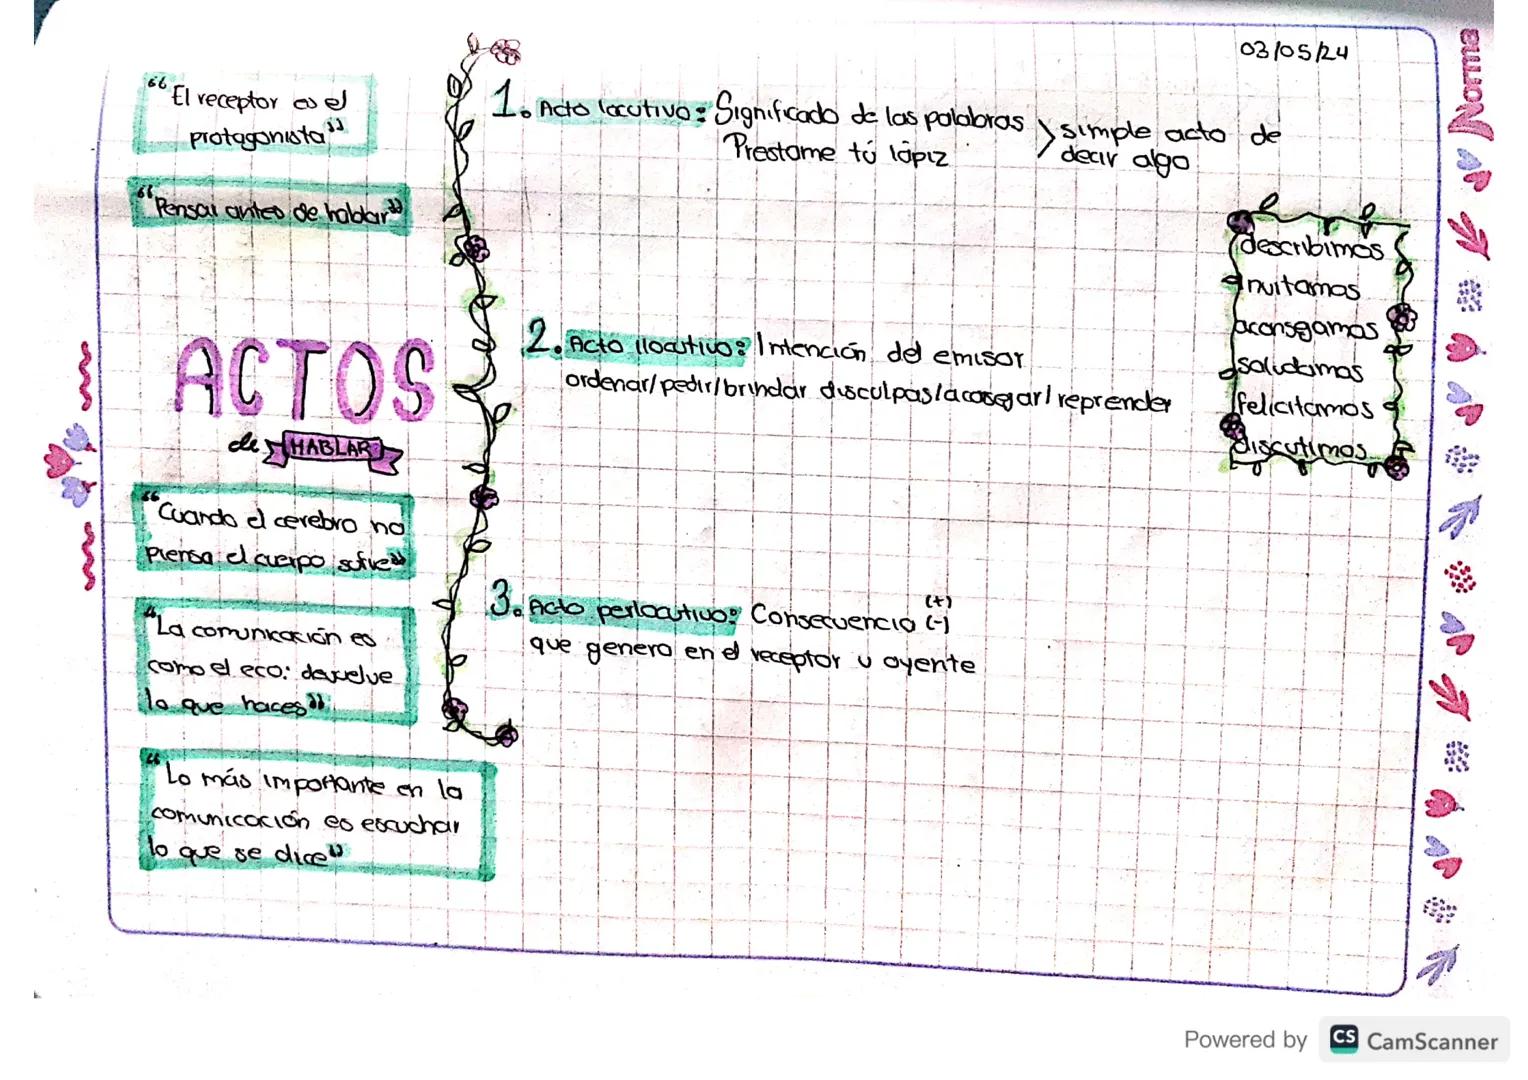 03/05/24
Norma
“El receptor es el
protagonista”
“Pensar antes de hablar”
ACTOS
de HABLAR
“Cuando el cerebro no
piensa el cuerpo sufre”
“La comunicación es
como el eco: devuelve
lo que haces”
“Lo más importante en la
comunicación es escuchar
lo que se dice”
1. Acto locutivo: Significado de las palabras
Prestame tú lápiz
simple acto de
decir algo
2. Acto ilocutivo: Intención del emisor
ordenar/pedir/brindar disculpas/acosegar/reprender
3. Acto perlocutivo: Consecuencia (+) (-)
que genero en el receptor u oyente
describimos
invitamos
aconsegamos
saludamos
felicitamos
discutimos
Powered by CS CamScanner